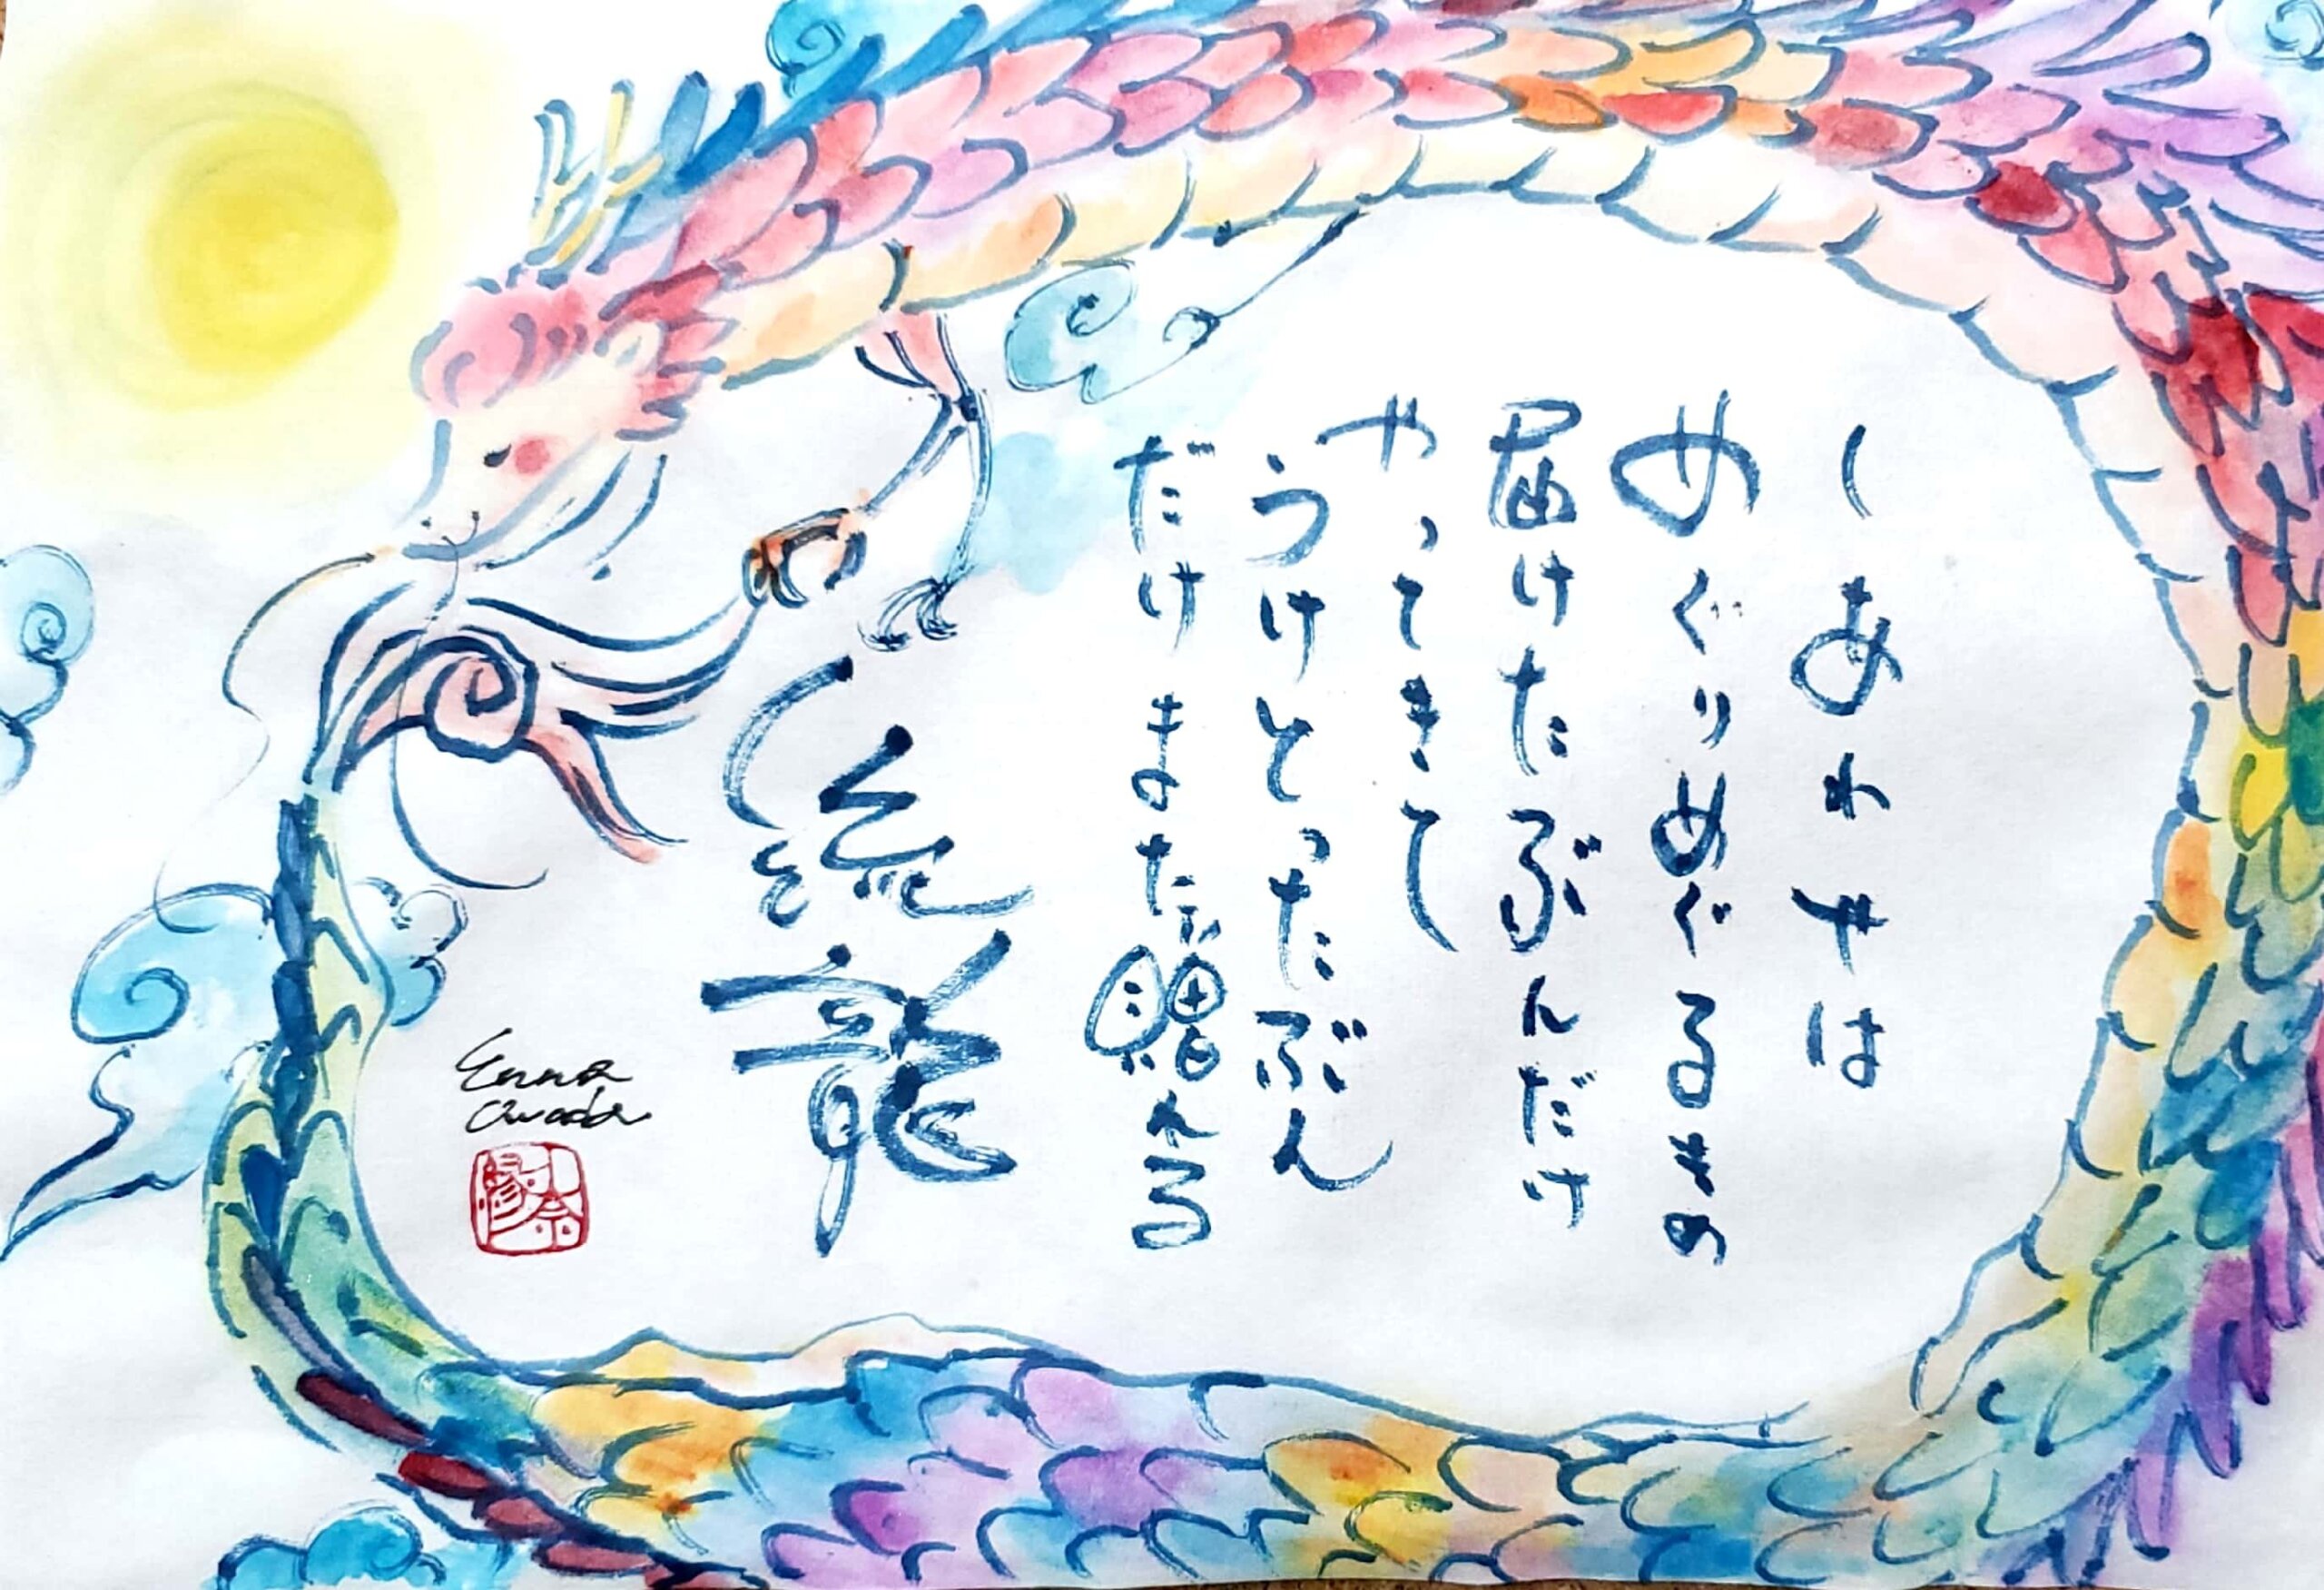 しあわせは
めぐりめぐるもの
届けたぶんだけ
やってきて
うけとったぶん
だけまた贈れる
龍
Enna
Owada